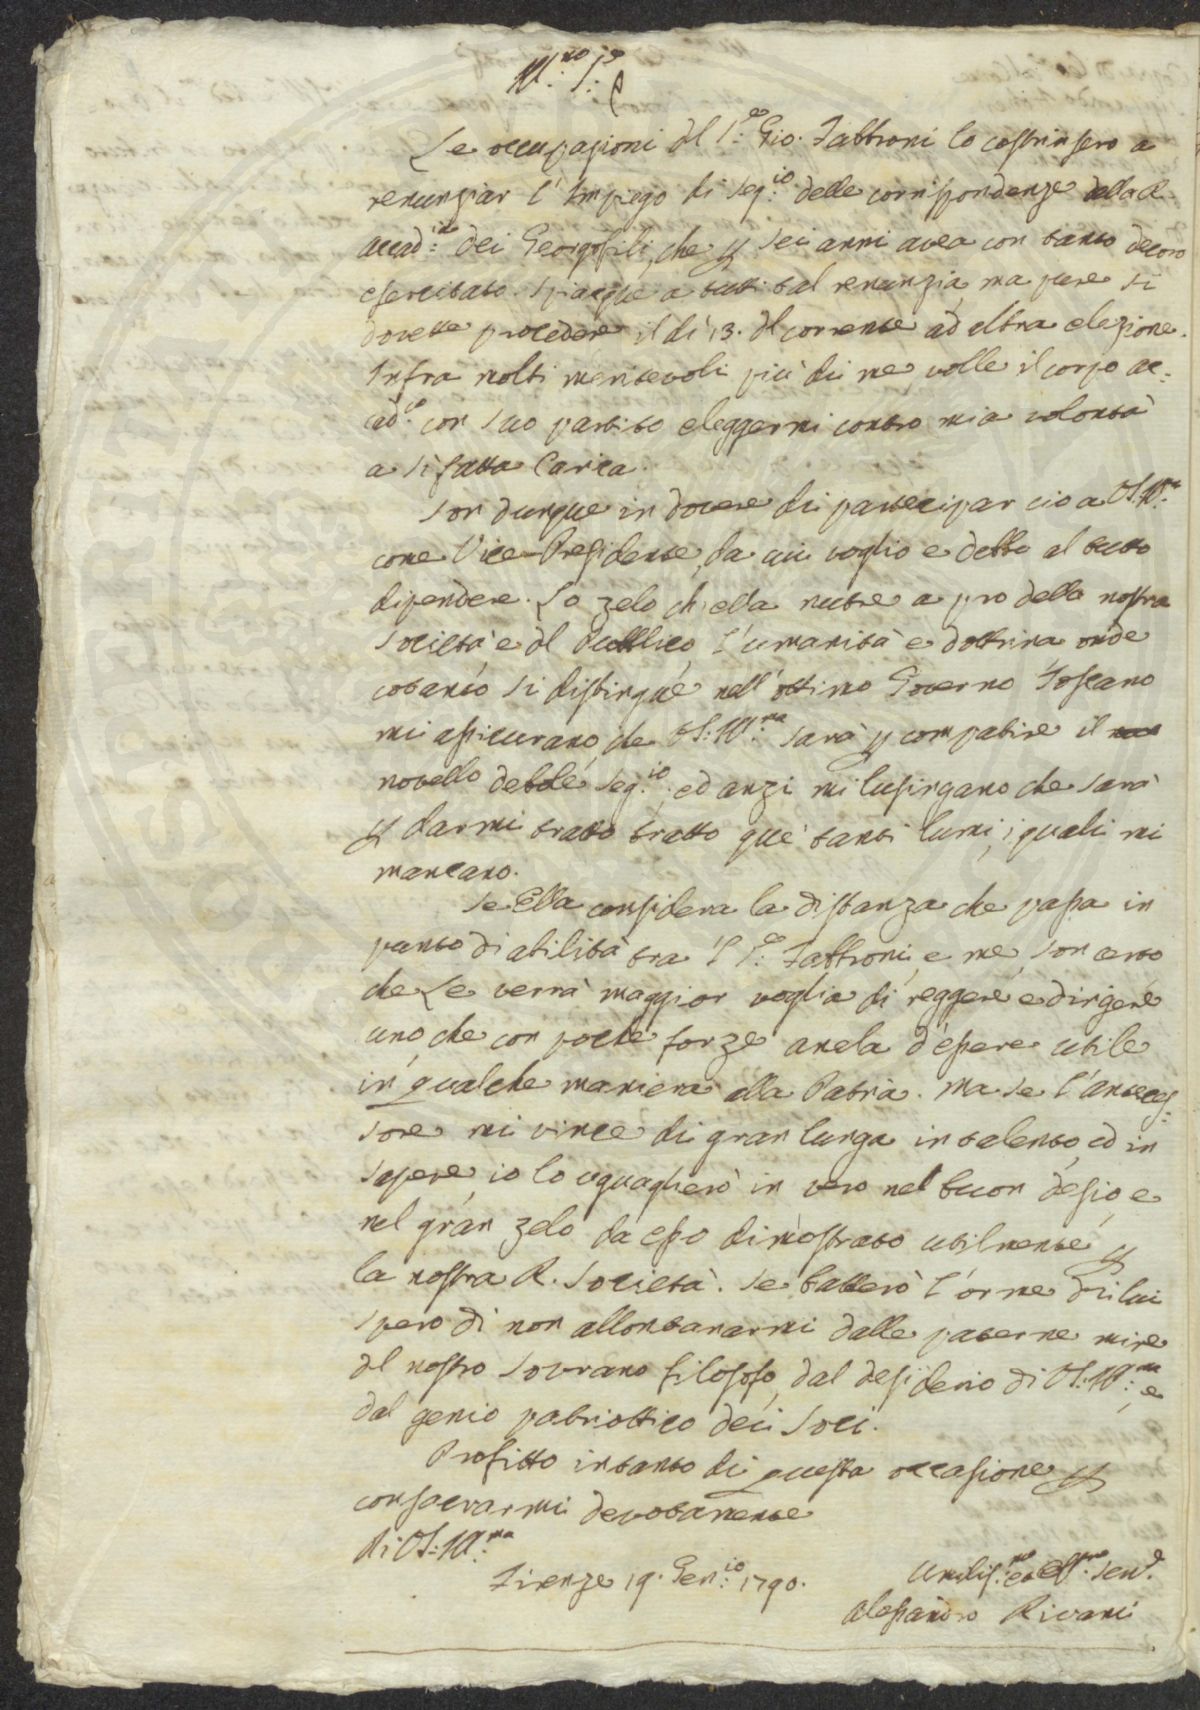 Ill:mo S:re
Le occupazioni del S:re Gio. Fabbroni lo costrinsero a
renunziar l'Impiego di Seg:io delle corrispondenze della R.
Accad:ia dei Georgofili, che p sei anni avea con tanto decoro
esercitato. Spiacque a tutti tal renunzia, ma pure si
dovette procedere il dì 13. del corrente ad altra elezione.
Infra molti meritevoli più di me, volle il corpo ac=
cad:co con suo partito eleggermi contro mia volontà
a sì fatta Carica.
Son dunque in dovere di partecipar ciò a VS: Ill:ma
come Vice-Presidente, da cui voglio e debbo al tutto
dipendere. Lo zelo ch'ella nutre a pro della nostra
Società e del Pubblico, l'umanità e dottrina onde
cotanto si distingue nell'ottimo Governo Toscano
mi assicurano, che VS: Ill:ma sarà p compatire il
novello debole Seg:io, ed anzi mi lusingano che sarà
p darmi tratto tratto que' tanti lumi, i quali mi
mancano.
Se Ella considera la distanza che passa in
punto di abilità tra 'l S:re Fabbroni, e me, son certo
che Le verrà maggior voglia di reggere e dirigere
uno che con poche forze anela d'essere utile
in qualche maniera alla Patria. Ma se l'anteces=
sore mi vince di gran lunga in talento, ed in
sapere, io lo uguaglierò in vero nel buon desio, e
nel gran zelo da esso dimostrato utilmente p
la nostra R. Società. Se batterò l'orme di lui
spero di non allontanarmi dalle paterne mire
del nostro Sovrano filosofo, dal desiderio di VS: Ill:ma e
dal genio patriottico dei Soci.
Profitto intanto di questa occasione p
consacrarmi devotamente
di VS: Ill:ma
Firenze 19. Gen:io 1790.
Umilis:mo ed Obb:mo Serv.e
Alessandro Rivani